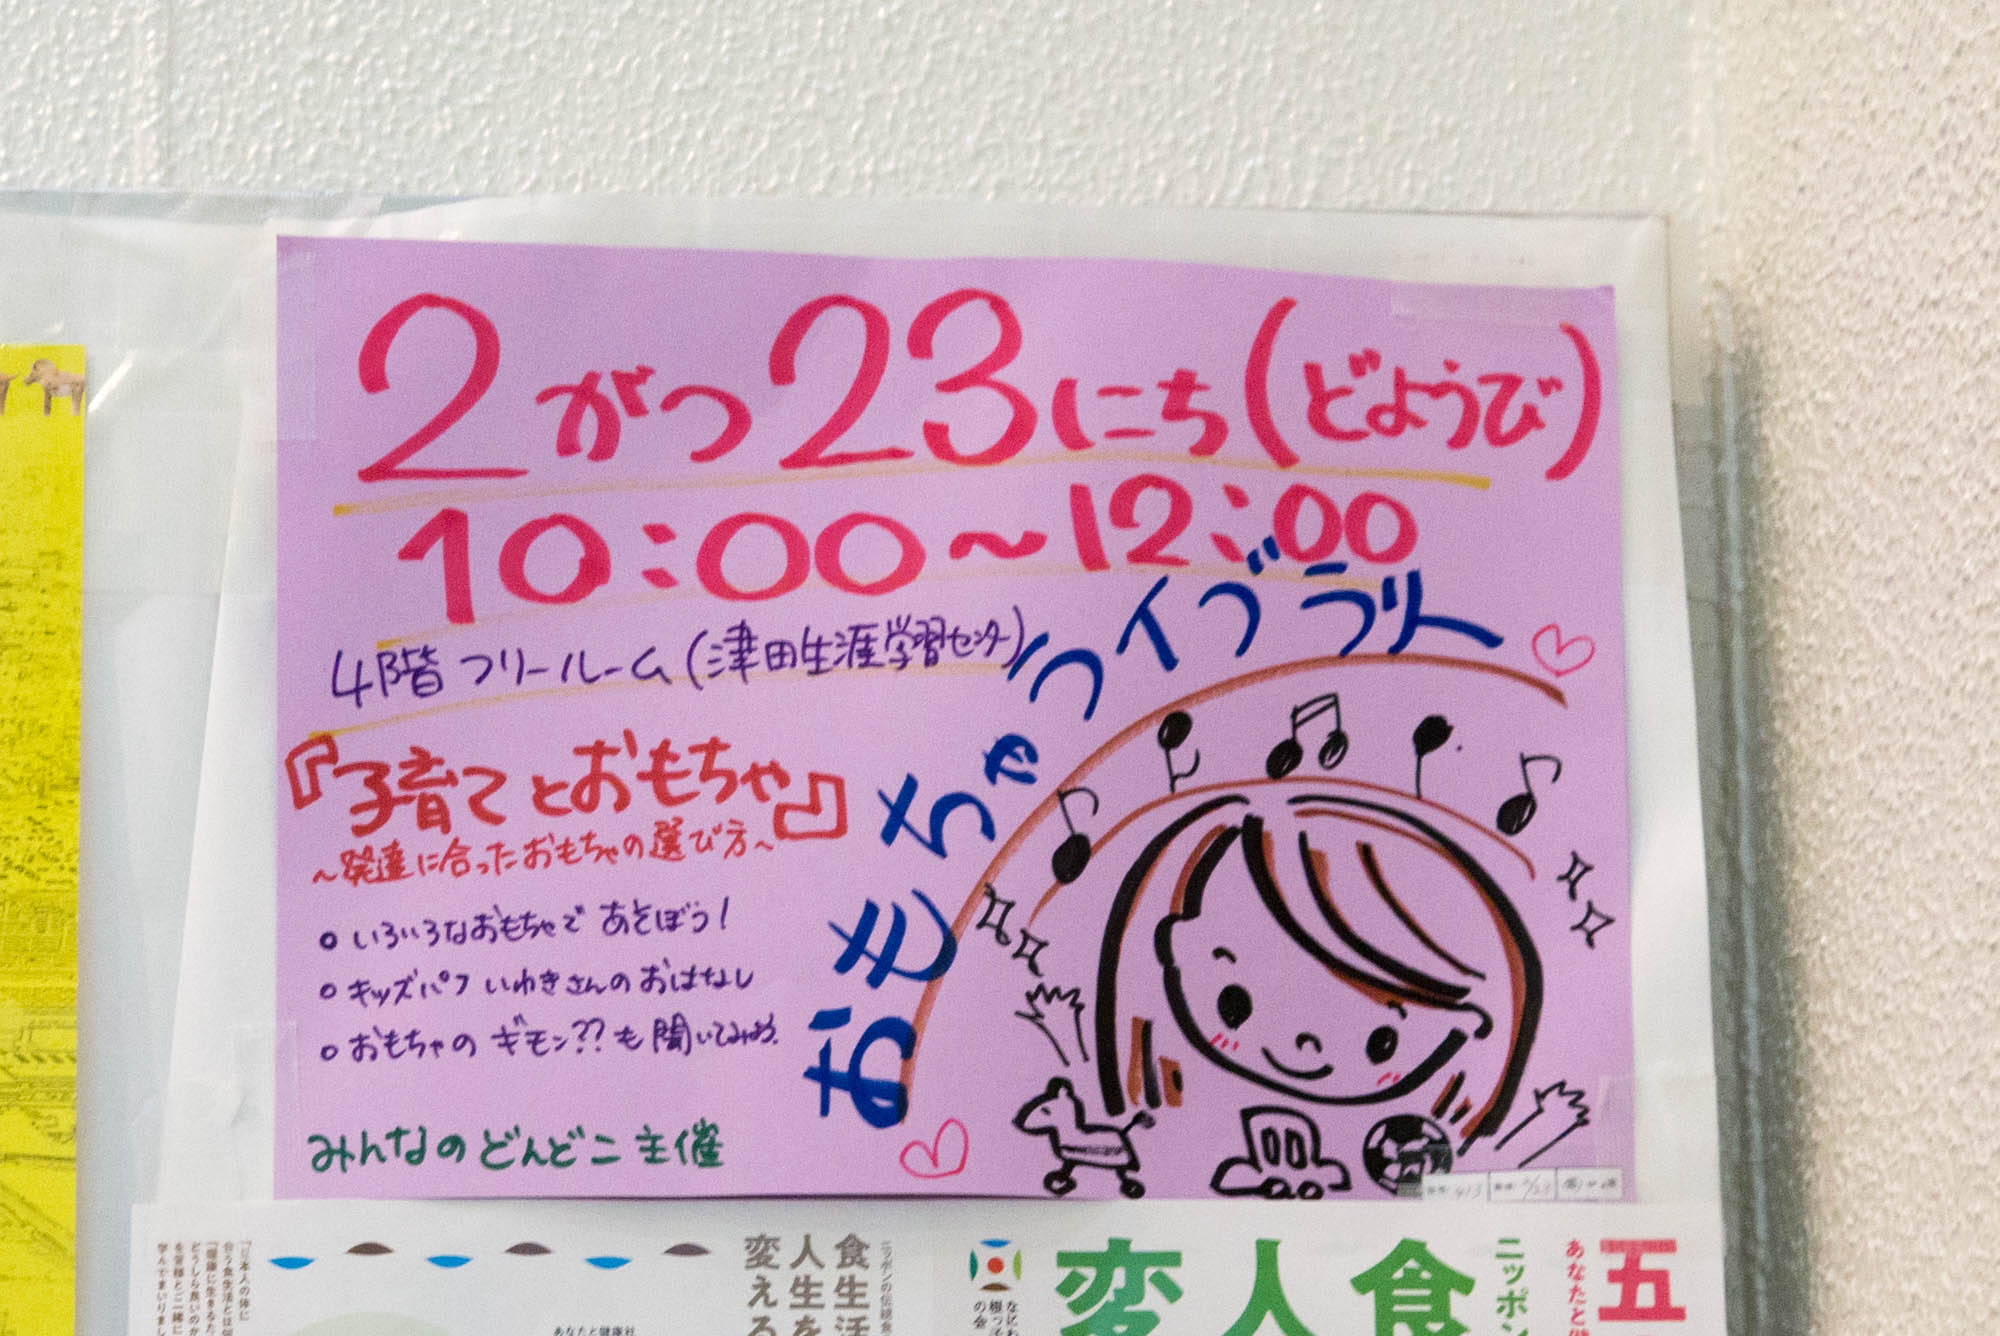 2がつ23にち(どようび)
10:00~12:00
4階 フリールーム(津田生涯学習センター)
おもちゃライブラリー
『子育てとおもちゃ』
~発達に合ったおもちゃの選び方~
○ いろいろなおもちゃで あそぼう!
○ キッズパフ いわきさんの おはなし
○ おもちゃの ギモン??も 聞いてみよう。
みんなのどんどこ 主催
食生活
人生を
変える
変人食
ニッポン
五
あなたと